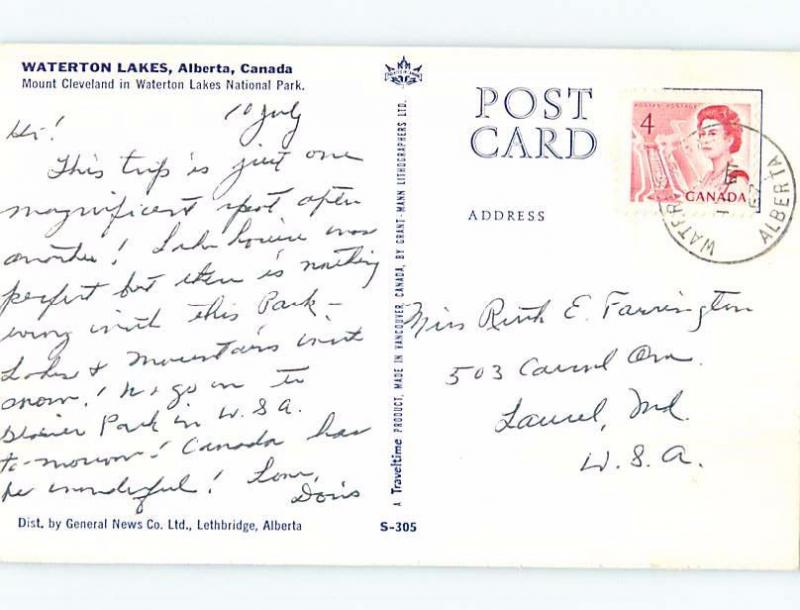 WATERTON LAKES, Alberta, Canada
Mount Cleveland in Waterton Lakes National Park.
10 July
Hi!
This trip is just one
magnificent spot after
another! Lake Louise was
perfect but there is nothing
wrong with this Park –
Lakes & Mountains with
snow! We go on to
Glacier Park in U.S.A.
to-morrow! Canada has
be wonderful! Love,
Doris
Dist. by General News Co. Ltd., Lethbridge, Alberta
S-305
A Traveltime PRODUCT, MADE IN VANCOUVER, CANADA, BY GRANT-MANN LITHOGRAPHERS LTD.
POST
CARD
ADDRESS
POSTES POSTAGE
4
CANADA
ALBERTA
Miss Ruth E. Farrington
503 Carrol Ave.
Laurel, Md.
U.S.A.